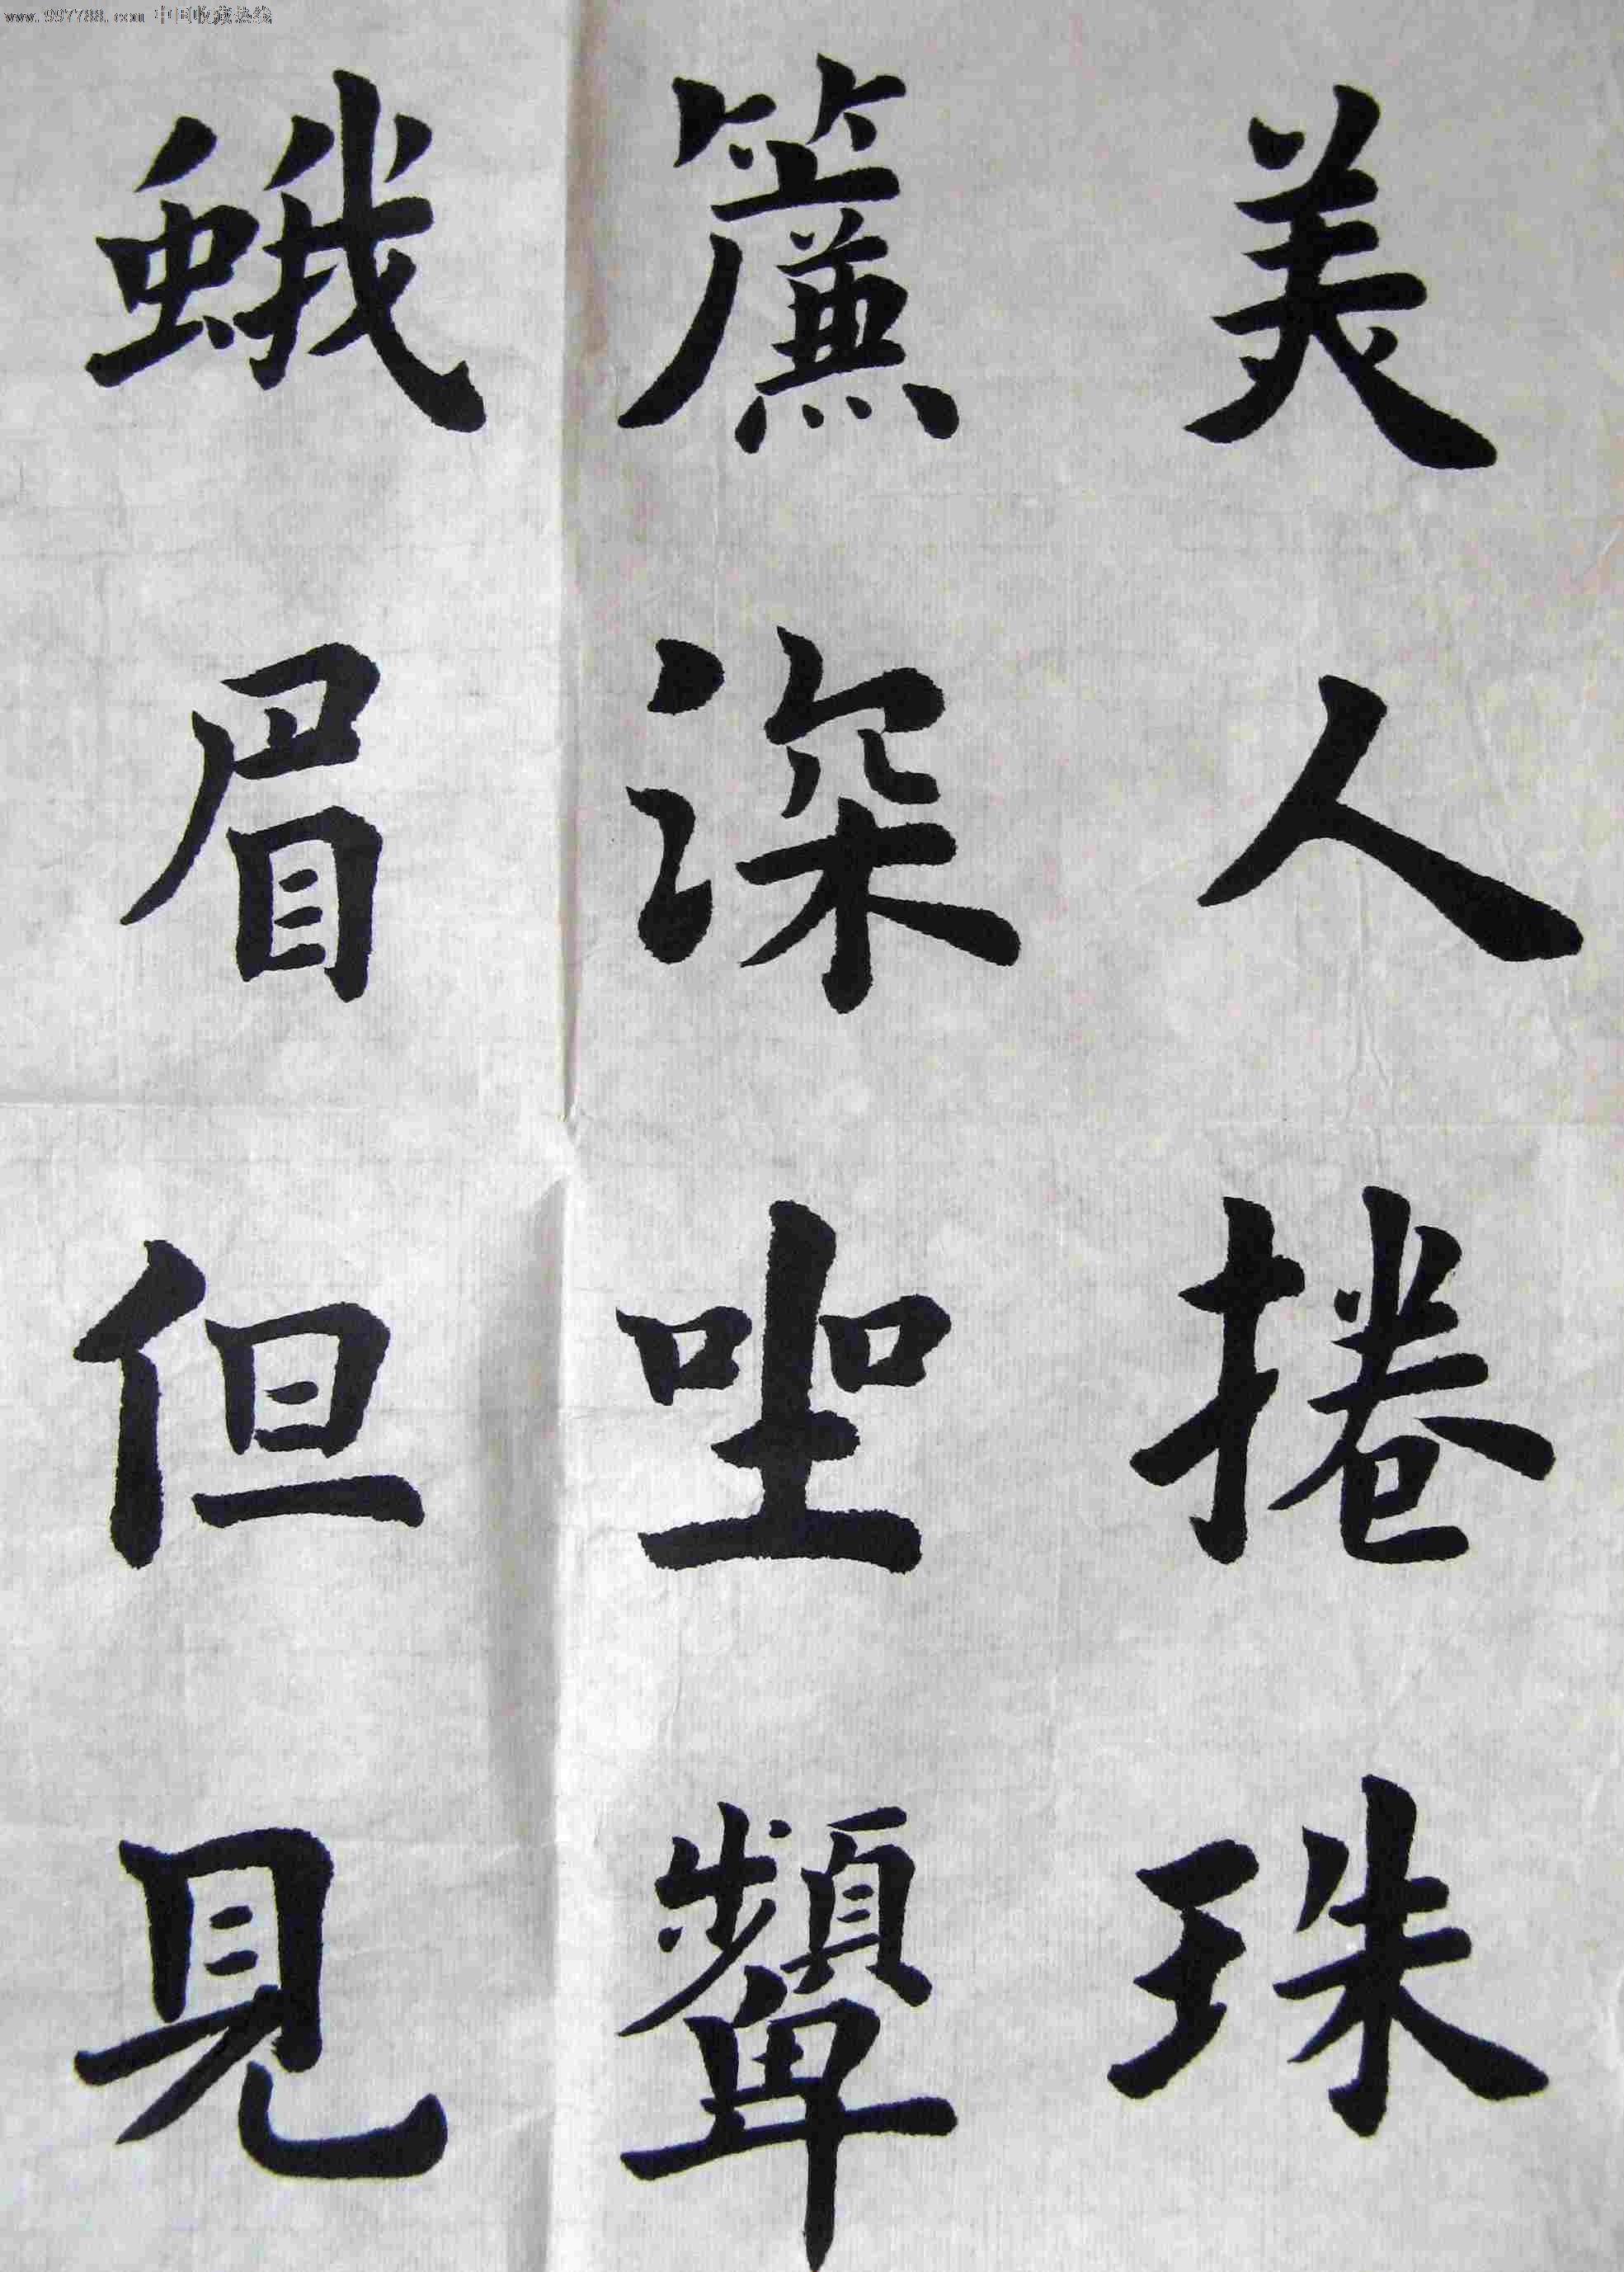 www.997788.com 中国收藏热线
美人捲珠
簾深坐顰
蛾眉但見